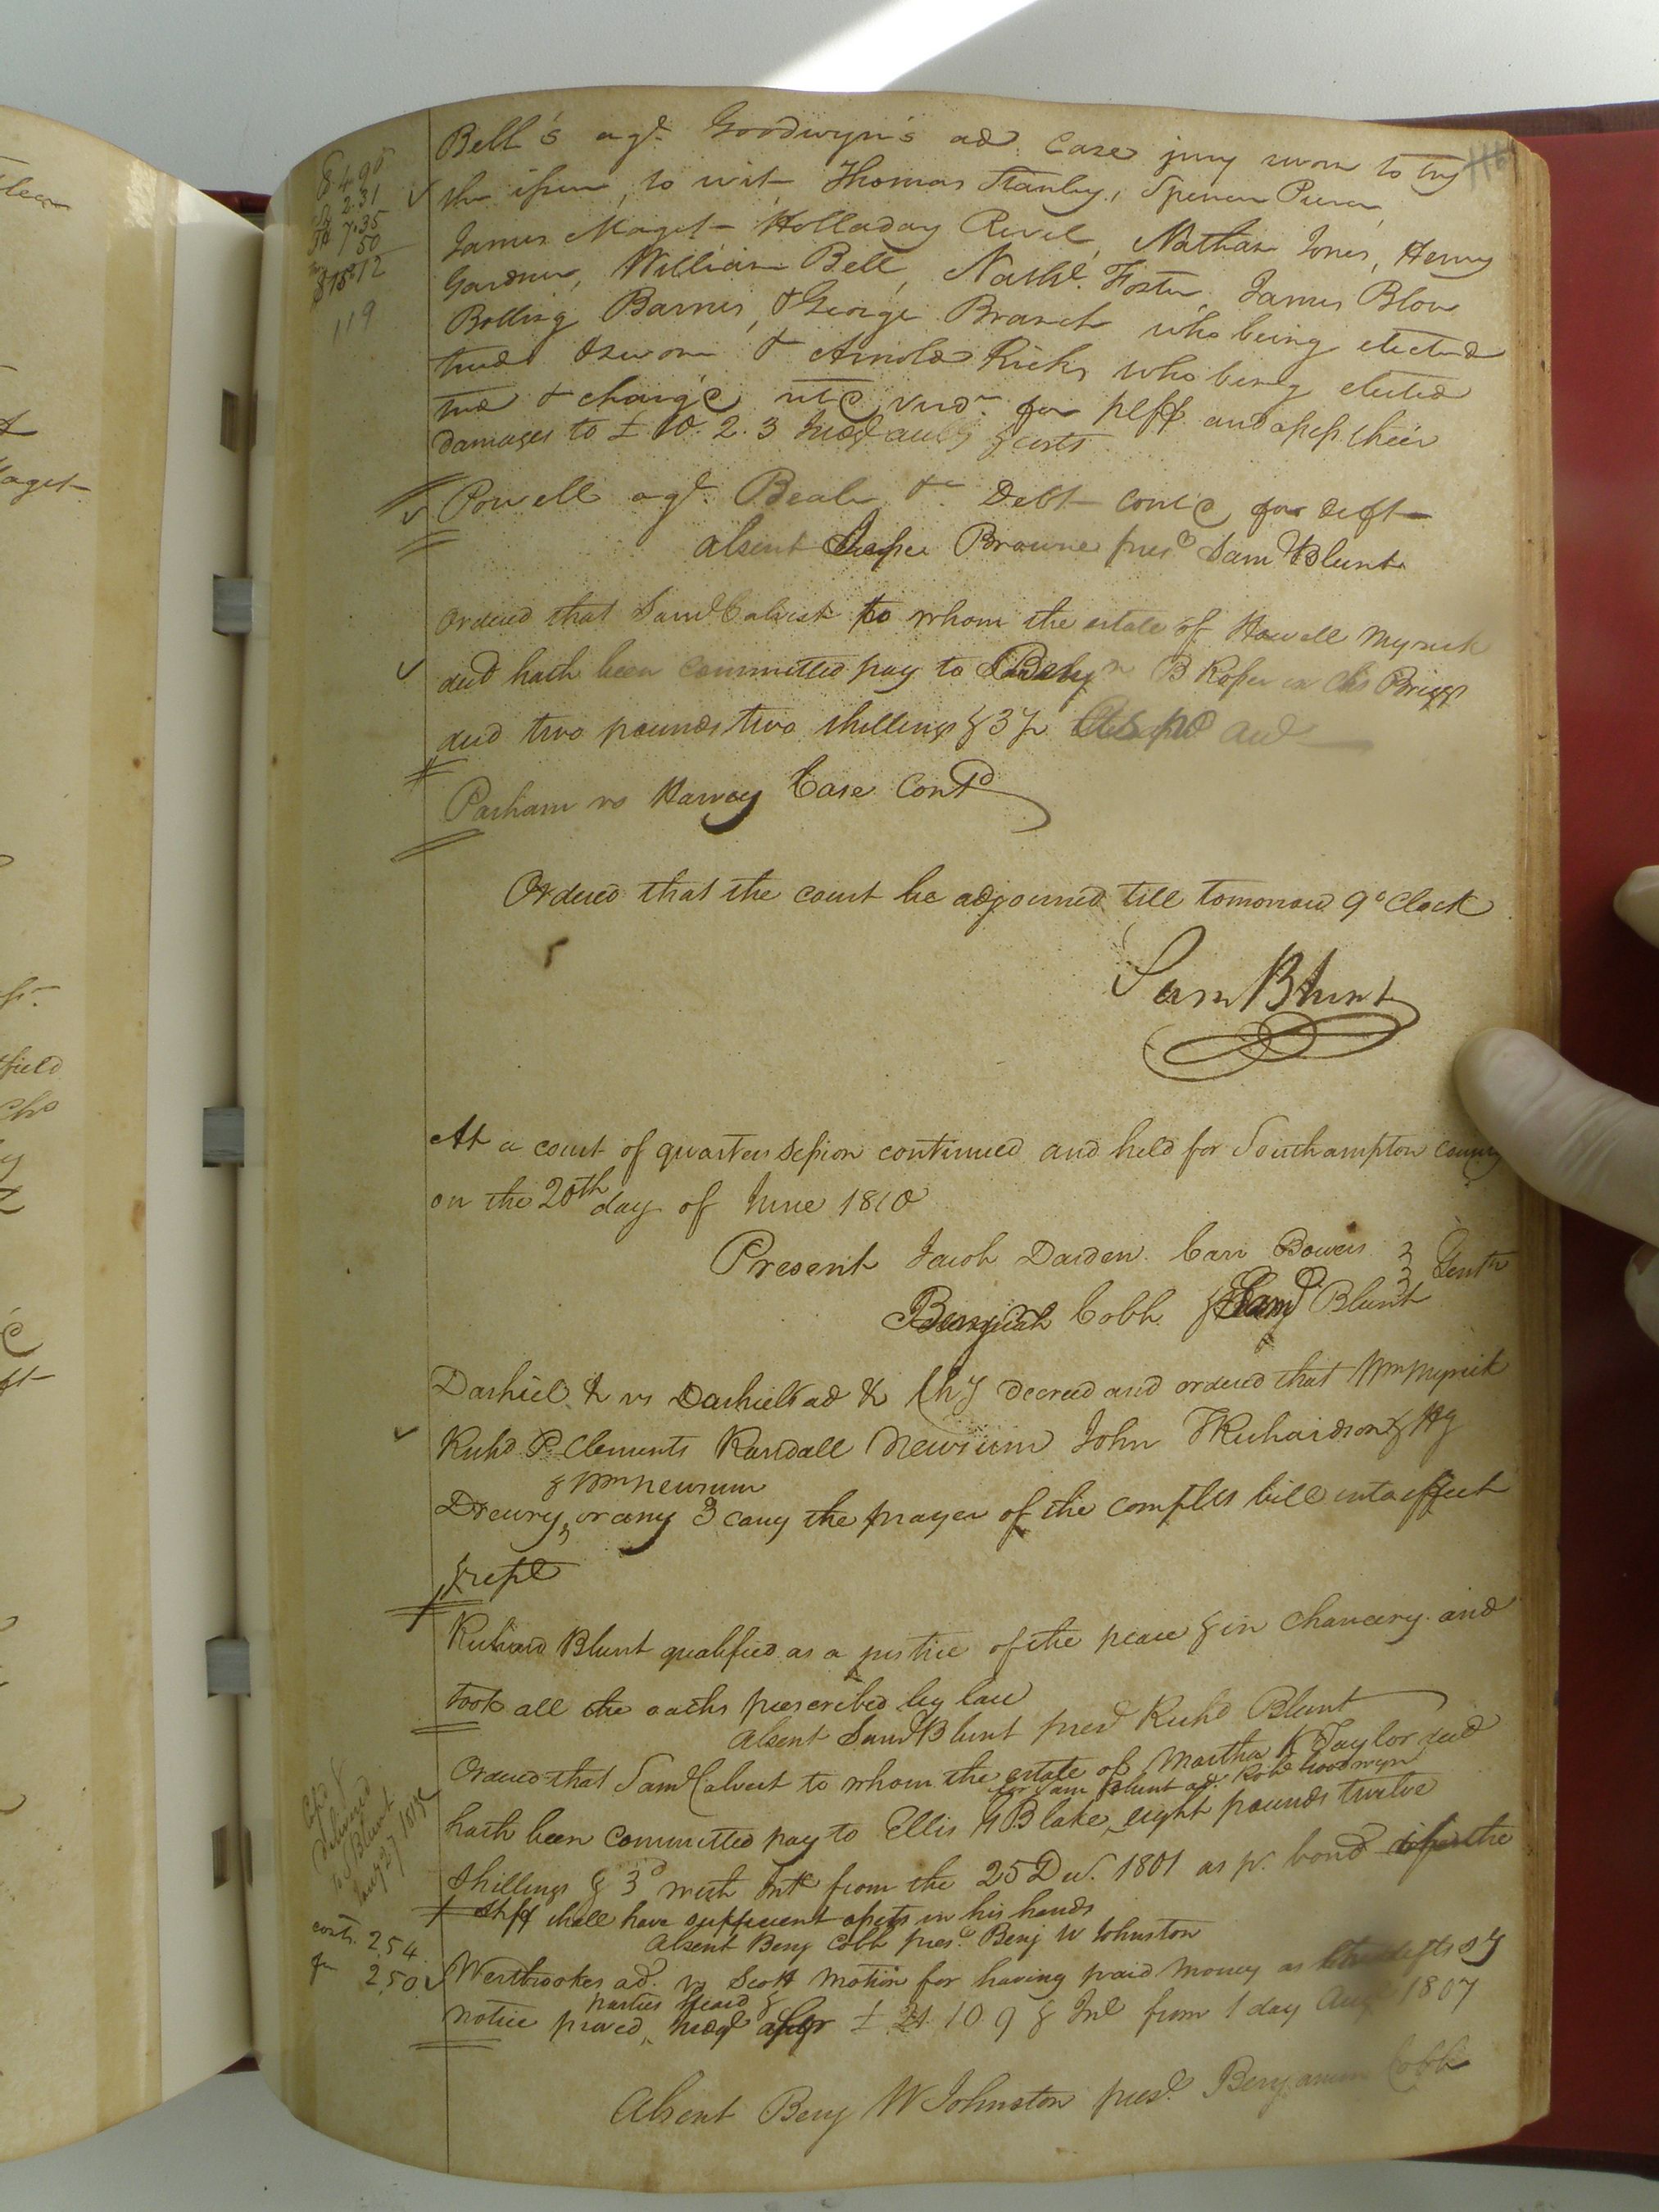 Bell's agt. Goodwyn's ad. Case jury sworn to try
the issue, to wit Thomas Stanley, Spencer Pierce,
James Maget Holladay Revel, Nathan Jones, Henry
Gardner, William Bell, Nathl. Foster, James Blow
Bolling Barnes, & George Branch who being elected
tried & sworn & Arnold Ricks who being elected
tried & charg'd verd. for plff. and assess their
damages to £ 10. 2. 3 & costs
Powell agt. Beale &c Debt cont'd for deft
absent Browne presd Saml Blunt
Ordered that Saml Calvert to whom the estate of Howell Myrick
decd hath been committed pay to B Roper ex Chs Briggs
decd two pounds two shillings & 3
Parham vs Harvey Case Contd
Ordered that the court be adjourned till tomorrow 9 o Clock
Sam Blunt
At a court of quarter session continued and held for Southampton county
on the 20th day of June 1810
Present Jacob Darden. Carr Bowers } Gentn
Benjn Cobb & Saml Blunt
Dashiel & vs Dashiels ad & Chy decreed and ordered that Wm Myrick
Richd P. Clements Randall Newsum John Richardson & Hy
& Wm Newsum
Drewry, or any 3 cary the prayer of the complts bill into effect
& rept
Richard Blunt qualified as a justice of the peace & in chancery and
took all the oaths prescribed by law
Absent Saml Blunt presd Richd Blunt
Ordered that Saml Calvert to whom the estate of Martha K Taylor decd
for Sam Blunt ad. Robt Goodwyn
hath been committed pay to Ellis H Blake, eight pounds twelve
shillings & 3d with Int from the 25 Dec. 1801 as pr. bond the
shff shall have sufficient assets in his hands
Absent Benj Cobb presd. Benj W Johnston
Westbrookes ad. vs Scott motion for having paid money as
parties heard &
notice proved, £ 21 10 9 & Int from 1 day Aug 1807
Absent Benj W Johnston presd. Benjamin Cobb
2.31
7.35
50
119
delivered
to S Blunt
Aug 27 1810
costs. 2.54
2.50